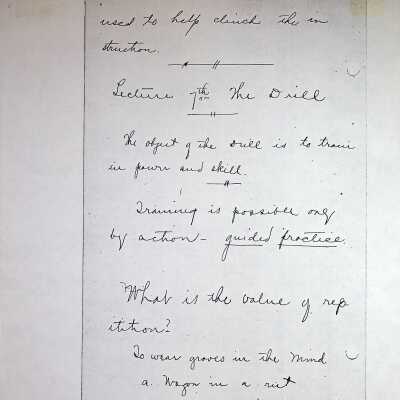 used to help clinch the in
struction.
Lecture 7th The Drill
The object of the Drill is to train
in power and skill.
Training is possible only
by action - guided practice.
What is the value of rep
itition?
To wear groves in the mind
a. Wagon in a rut